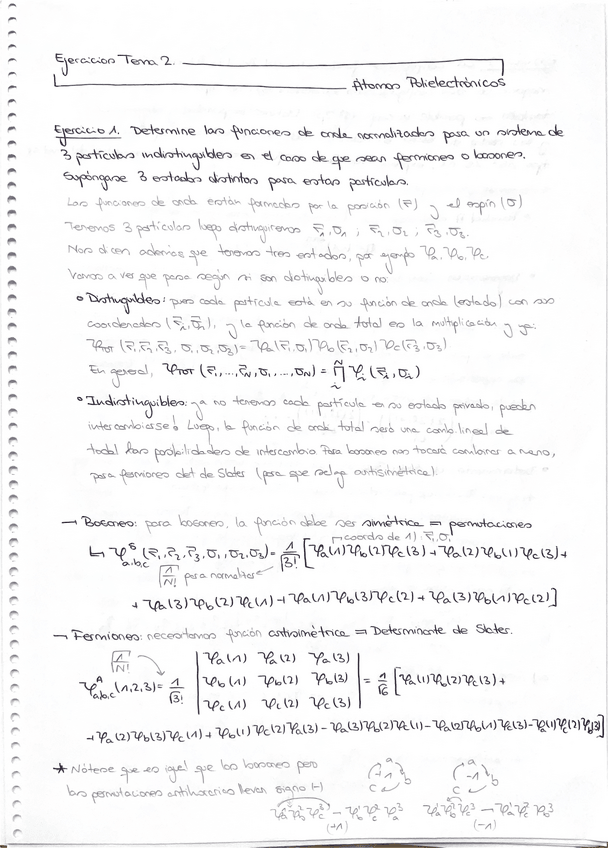 Ejercicios Tema 2.
Átomos Polielectrónicos
Ejercicio 1. Determine las funciones de onda normalizadas para un sistema de
3 partículas indistinguibles en el caso de que sean fermiones o bosones.
Supóngase 3 estados distintos para estas partículas.
Las funciones de onda están formadas por la posición (r̄) y el espín (σ)
Tenemos 3 partículas luego distinguiremos r̄₁,σ₁ ; r̄₂,σ₂ ; r̄₃,σ₃.
Nos dicen además que tenemos tres estados, por ejemplo Ψa, Ψb, Ψc.
Vamos a ver que pasa según si son distinguibles o no:
• Distinguibles: pues cada partícula está en su función de onda (estado) con sus
coordenadas (r̄ᵢ, σᵢ), y la función de onda total es la multiplicación y ya:
ΨTOT (r̄₁,r̄₂,r̄₃,σ₁,σ₂,σ₃) = Ψa(r̄₁,σ₁)Ψb(r̄₂,σ₂)Ψc(r̄₃,σ₃)
En general, ΨTOT (r̄₁,...,r̄N,σ₁,...,σN) = ∏ᵢᴺ Ψᵢ (r̄ᵢ,σᵢ)
• Indistinguibles: ya no tenemos cada partícula en su estado privado, pueden
intercambiarse! Luego, la función de onda total será una comb lineal de
todas las posibilidades de intercambio. Para bosones nos tocará combinar a mano,
para fermiones det de Slater (para que salga antisimétrica).
→ Bosones: para bosones, la función debe ser simétrica = permutaciones
coords de 1) r̄₁σ₁
↳ Ψˢa,b,c (r̄₁,r̄₂,r̄₃,σ₁,σ₂,σ₃) = 1/√3! [Ψa(1)Ψb(2)Ψc(3) + Ψa(2)Ψb(1)Ψc(3) +
1/√N! para normalizar
+ Ψa(3)Ψb(2)Ψc(1) + Ψa(1)Ψb(3)Ψc(2) + Ψa(3)Ψb(1)Ψc(2)]
→ Fermiones: necesitamos función antisimétrica = Determinante de Slater.
1/√N!
Ψa(1) Ψa(2) Ψa(3)
Ψᴬa,b,c (1,2,3) = 1/√3! | Ψb(1) Ψb(2) Ψb(3) | = 1/√6 [Ψa(1)Ψb(2)Ψc(3) +
Ψc(1) Ψc(2) Ψc(3)
+ Ψa(2)Ψb(3)Ψc(1) + Ψb(1)Ψc(2)Ψa(3) - Ψa(3)Ψb(2)Ψc(1) - Ψa(2)Ψb(1)Ψc(3) - Ψa(1)Ψc(2)Ψb(3)]
* Nótese que es igual que los bosones pero
las permutaciones antihorarias llevan signo (-)
a b c
-1
a b c
-1
Ψa¹Ψb²Ψc³ → Ψb¹Ψc²Ψa³
(-1)
Ψa¹Ψb²Ψc³ → Ψa¹Ψc²Ψb³
(-1)